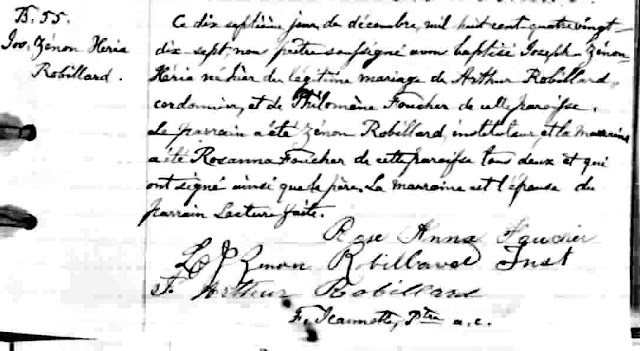 B. 55.
Jos. Zénon Héria
Robillard.
Ce dix septième jour de décembre, mil huit cent quatre vingt-
dix-sept nous prêtre soussigné avons baptisé Joseph-Zénon-
Héria né hier du légitime mariage de Arthur Robillard,
cordonnier, et de Philomène Foucher de cette paroisse.
Le parrain a été Zénon Robillard, instituteur, et la marraine
a été Rosanna Foucher de cette paroisse tous deux et qui
ont signé ainsi que le père. La marraine est l'épouse du
parrain Lecture faite.
Rose Anna Faucher
Zenon Robillard Inst
Arthur Robillard
F. Jeannotte, Ptre a.c.